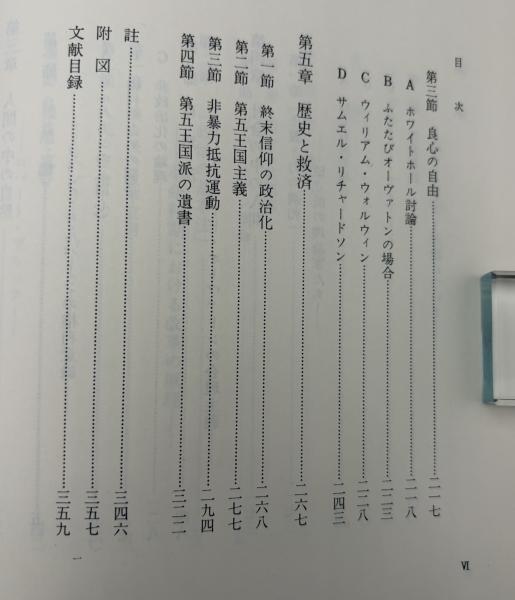 目次
第三節 良心の自由……二一七
A ホワイトホール討論……二一八
B ふたたびオーヴァトンの場合……二二三
C ウィリアム・ウォルウィン……二二八
D サムエル・リチャードソン……二四三
第五章 歴史と救済……二六七
第一節 終末信仰の政治化……二六八
第二節 第五王国主義……二七七
第三節 非暴力抵抗運動……二九四
第四節 第五王国派の遺書……三二二
註……三四六
附図……三五七
文献目録……三五九
VI